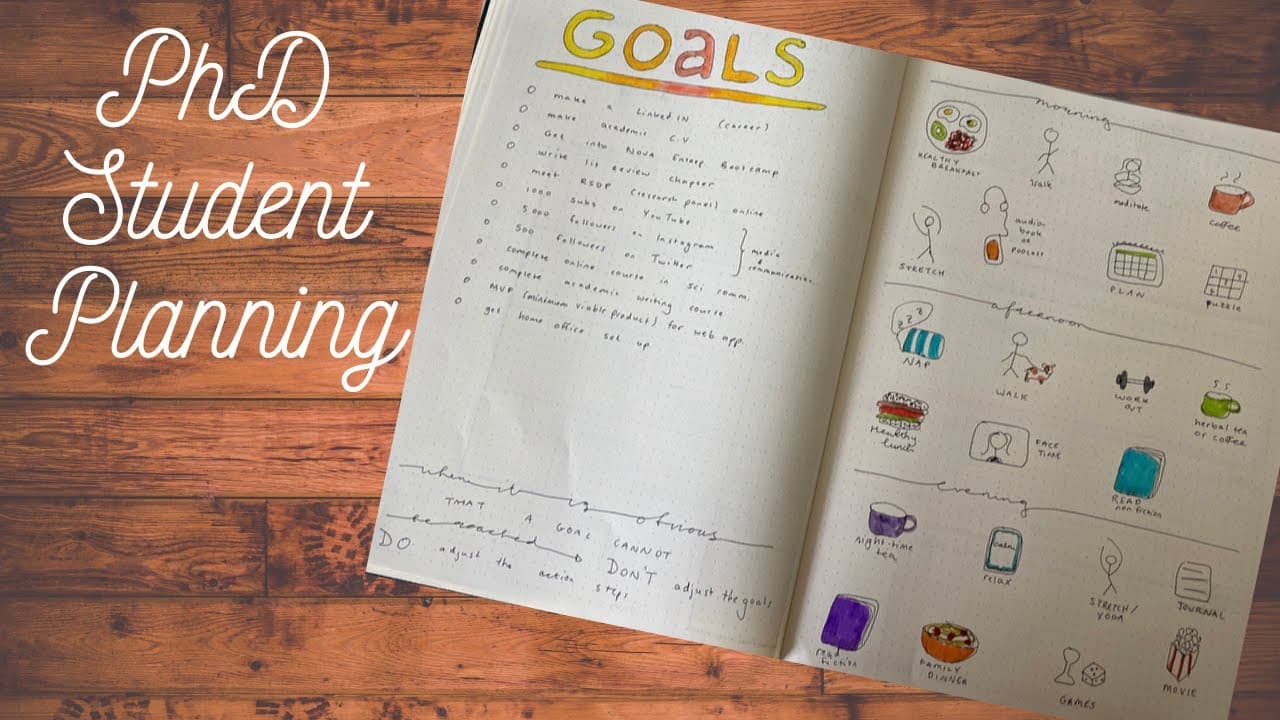 PhD
Student
Planning
GOaLS
make a LinkedIN (career)
make academic C.V
Get into Nova Entrep Bootcamp
write lit eview chapter
meet RSDP (research panel) online
1000 subs on YouTube
5000 followers on Instagram
500 followers on Twitter
media
& communication
complete online course in sci comm.
complete academic writing course
MVP (minimum viable product) for web app.
get home office set up
when it is obvious
THAT A GOAL CANNOT
be reached DON'T adjust the goals
DO adjust the action step,
morning
HEALTHY
BREAKFAST
Walk
meditate
coffee
STRETCH
audio-
book
or
PODCAST
PLAN
puzzle
afternoon
z z z
NAP
WALK
WORK
OUT
herbal tea
or coffee
Healthy
lunch
FACE
TIME
READ
non fiction
evening
night-time
tea
calm
relax
STRETCH/
YOGA
JOURNAL
read
fiction
FAMILY
DINNER
GAMES
MOVIE